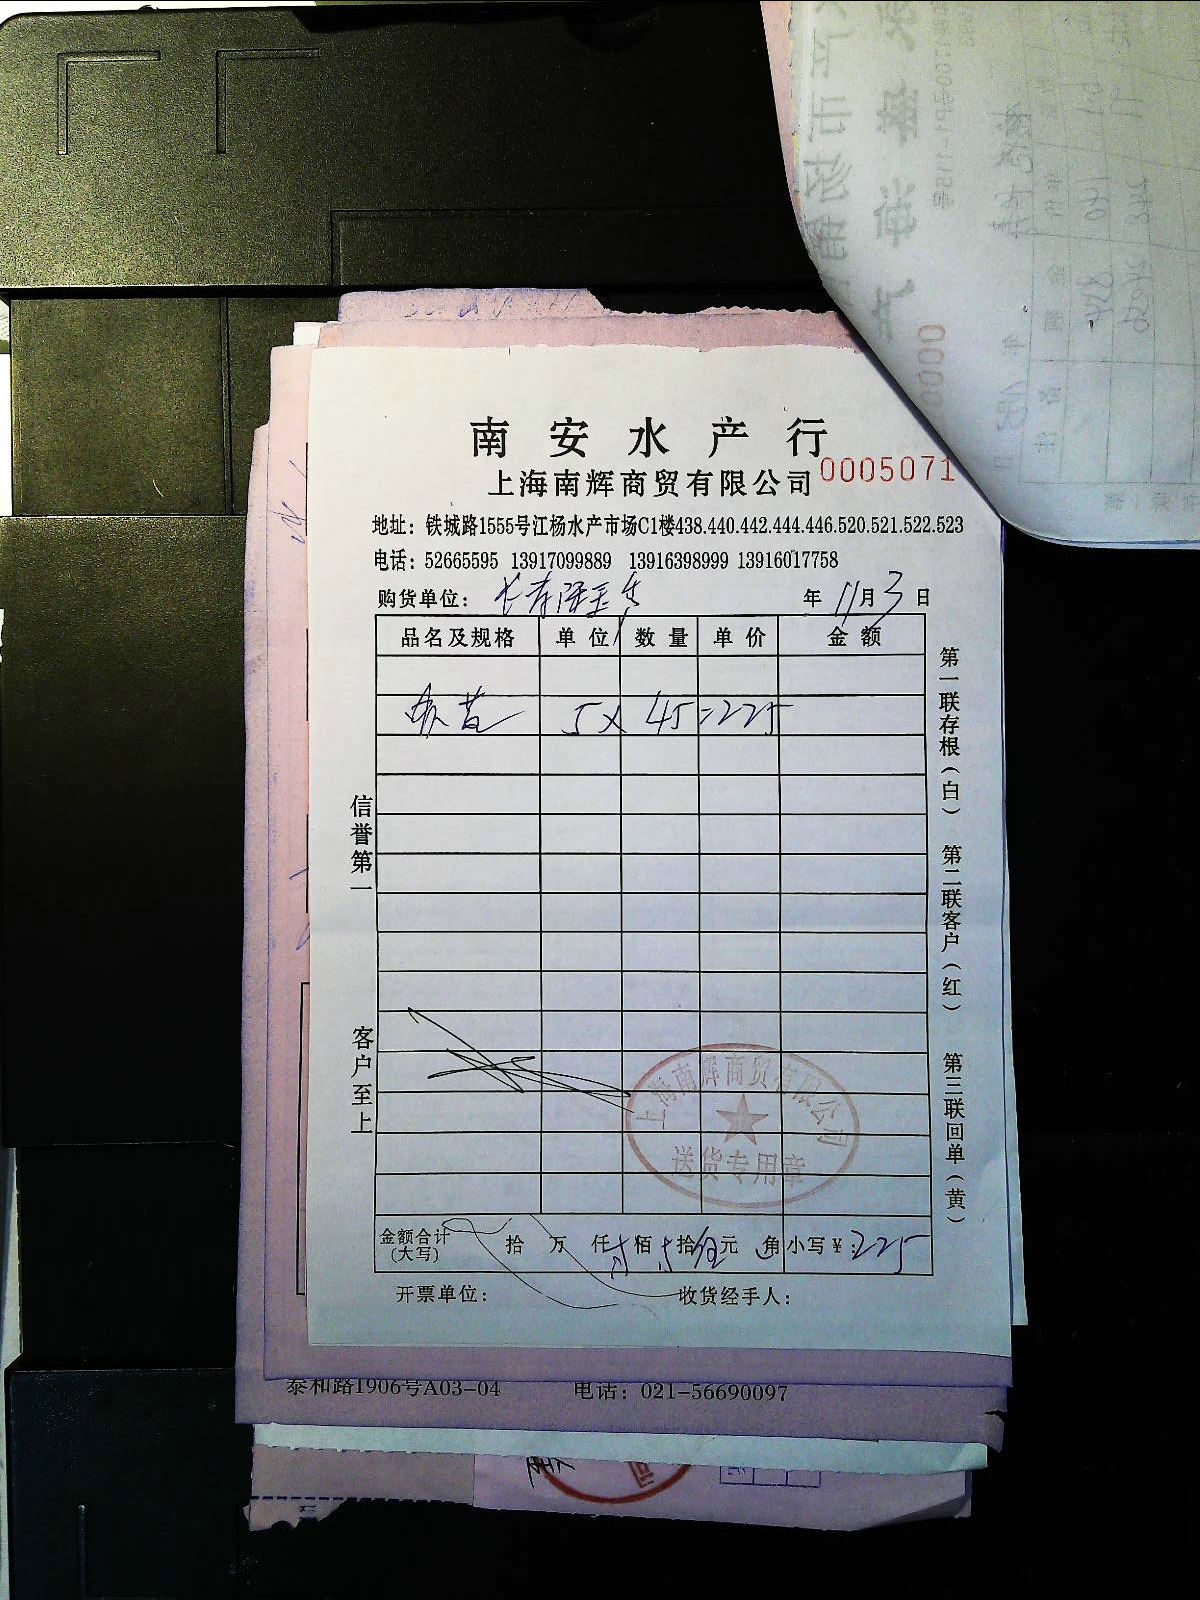 南安水产行
上海南辉商贸有限公司 0005071
地址：铁城路1555号江杨水产市场C1楼438.440.442.444.446.520.521.522.523
电话：52665595 13917099889 13916398999 13916017758
购货单位： 年 11月3日
品名及规格 单位 数量 单价 金额
5× 45=225
信誉第一
客户至上
第一联存根（白） 第二联客户（红） 第三联回单（黄）
上海南辉商贸有限公司
送货专用章
金额合计（大写） 拾 万 仟 佰 拾 元 角 小写￥：225
开票单位： 收货经手人：
泰和路1906号A03-04 电话：021-56690097